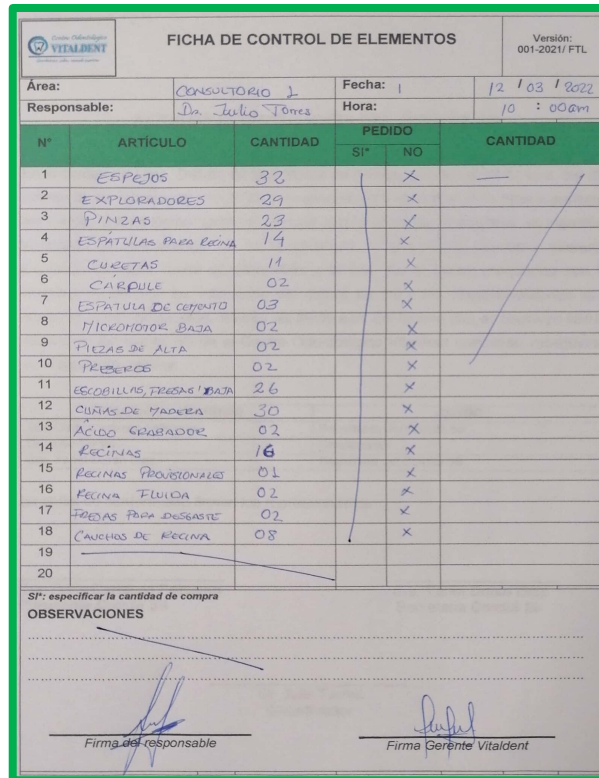 Centro Odontológico
VITALDENT
FICHA DE CONTROL DE ELEMENTOS
Versión:
001-2021/ FTL
Área: CONSULTORIO 1 Fecha: 12 / 03 / 2022
Responsable: Dr. Julio Torres Hora: 10 : 00am
N° ARTÍCULO CANTIDAD PEDIDO CANTIDAD
SI* NO
1 ESPEJOS 32 X
2 EXPLORADORES 29 X
3 PINZAS 23 X
4 ESPÁTULAS PARA RECINA 14 X
5 CURETAS 11 X
6 CARPULE 02 X
7 ESPATULA DE CEMENTO 03 X
8 MICROMOTOR BAJA 02 X
9 PIEZAS DE ALTA 02 X
10 PRESEROS 02 X
11 ESCOBILLAS, FRESAS BAJA 26 X
12 CUÑAS DE MADERA 30 X
13 ÁCIDO GRABADOR 02 X
14 RECINAS 16 X
15 RECINAS PROVISIONALES 01 X
16 RECINA FLUIDA 02 X
17 FRESAS PARA DESGASTE 02 X
18 CAUCHOS DE RECINA 08 X
19
20
SI*: especificar la cantidad de compra
OBSERVACIONES
Firma del responsable Firma Gerente Vitaldent